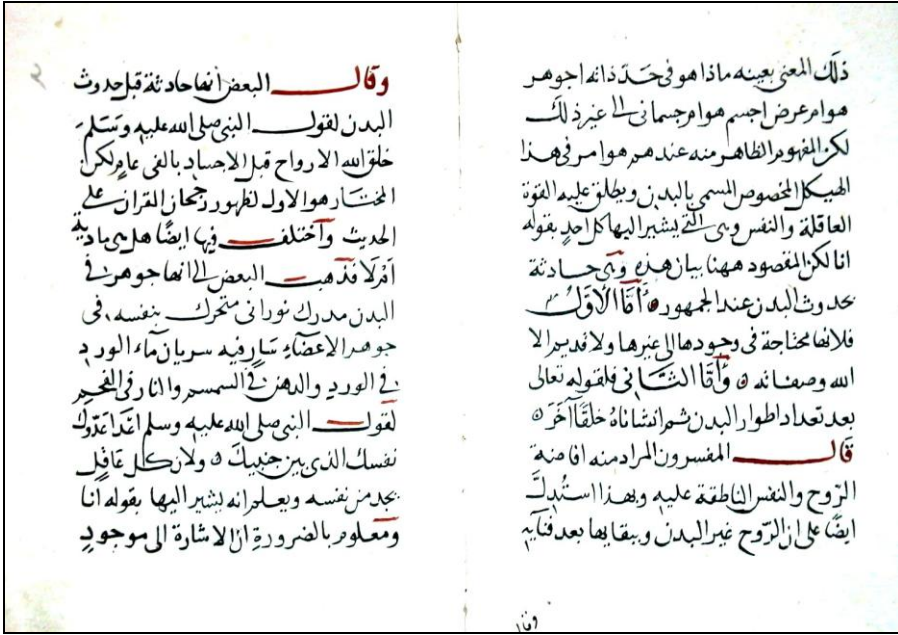 ذلك المعنى بعينه ماذا هو فى حد ذاته اجوهر
هو ام عرض اجسم هو ام جسمانى الى غير ذلك
لكن المفهوم الظاهر منه عندهم هو امر فى هذا
الهيكل المخصوص المسمى بالبدن ويطلق عليه القوة
العاقلة والنفس وهى التى يشير اليها كل احد بقوله
انا لكن المقصود ههنا بيان هذه وهى حادثة
بحدوث البدن عند الجمهور ه أمّا الأوّل
فلانها محتاجة فى وجودها الى غيرها ولا قديم الا
الله وصفاته ه وأمّا الثّانى فلقوله تعالى
بعد تعداد اطوار البدن ثم انشاناهُ خلقًا آخر ه
قال المفسرون المراد منه افاضة
الرّوح والنفس الناطقة عليه وبهذا استُدِلَّ
ايضًا على ان الرّوح غير البدن وببقايها بعد فنايه
وقا
٢
وقال البعض انها حادثة قبل حدوث
البدن لقول النبى صلى الله عليه وسَلّمَ
خلق الله الارواح قبل الاجساد بالفى عامٍ لكن
المختار هو الاول لظهور رجحان القران على
الحديث وآختلف فيها ايضًا هل هى مادية
أمْ لَا فذهبت البعض الى انها جوهر فى
البدن مدرك نورانى متحرك بنفسه، فى
جوهر الاعضاءِ سَارٍ فيه سريان مآء الورد
فى الورد والدهن فى السمسم والنار فى الفحم
لقول النبى صلى الله عليه وسلم اعْدَا عَدُوّكَ
نفسك الذى بين جنبيكَ ه ولان كل عَاقِلٍ
يجد من نفسه ويعلم انه يشير اليها بقوله انا
ومَعلوم بالضرورةِ ان الاشارة الى موجودٍ